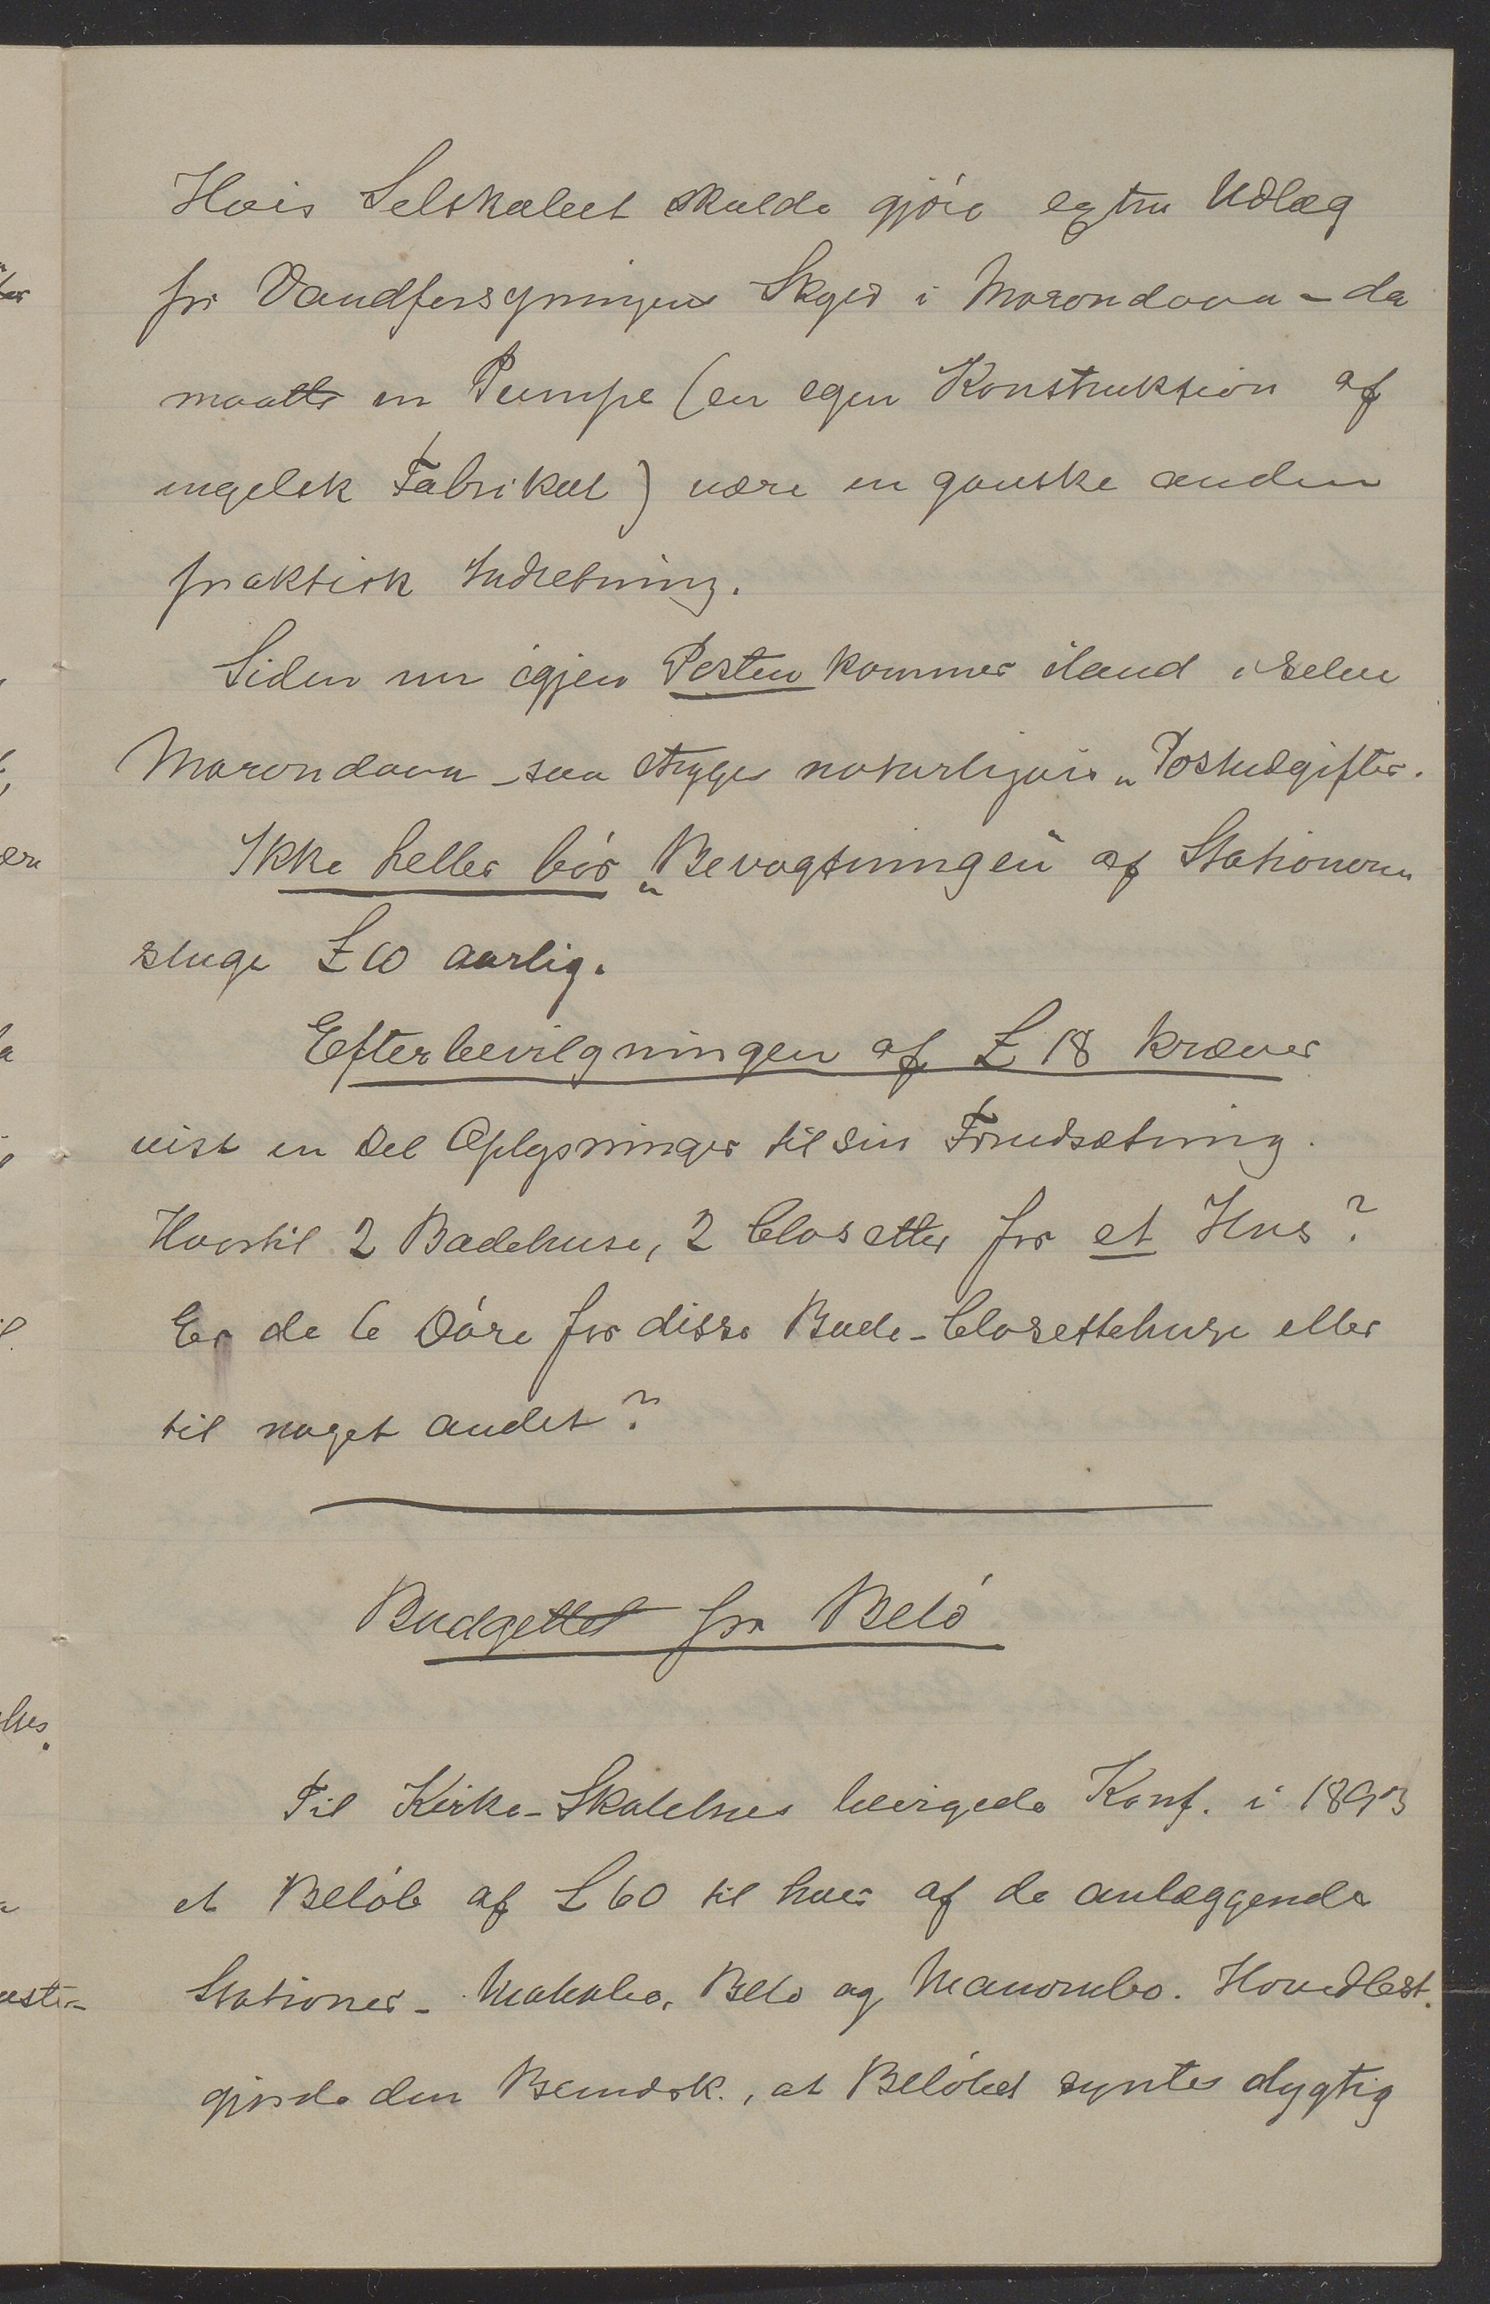 Hvis Selskabet skulde gjöre extra Udlæg
for Vandforsyningens Skyld i Morondava - da
maatte en Pumpe (en egen Konstruktion af
engelsk Fabrikat) være en ganske anden
praktisk Indretning.
Siden nu igjen Posten kommer iland i selve
Morondava - saa stryges naturligvis „Postudgifter.
Ikke heller bör „Bevogtningen" af Stationerne
sluge £ 10 aarlig.
Efterbevilgningen af £ 18 kræver
vist en Del Oplysninger til sin Forudsætning.
Hvortil 2 Badehuse, 2 Closetter for et Hus?
Er de 6 Döre for disse Bade-Closettehuse eller
til noget andet?
Budgettet fra Beló
Til Kirke-Skolehus bevigede Konf. i 1893
et Belöb af £ 60 til hver af de anlæggende
Stationer - Mahabo, Belo og Manombo. Hovedbest.
gjorde den Bemærk., at Belöbet syntes dygtig